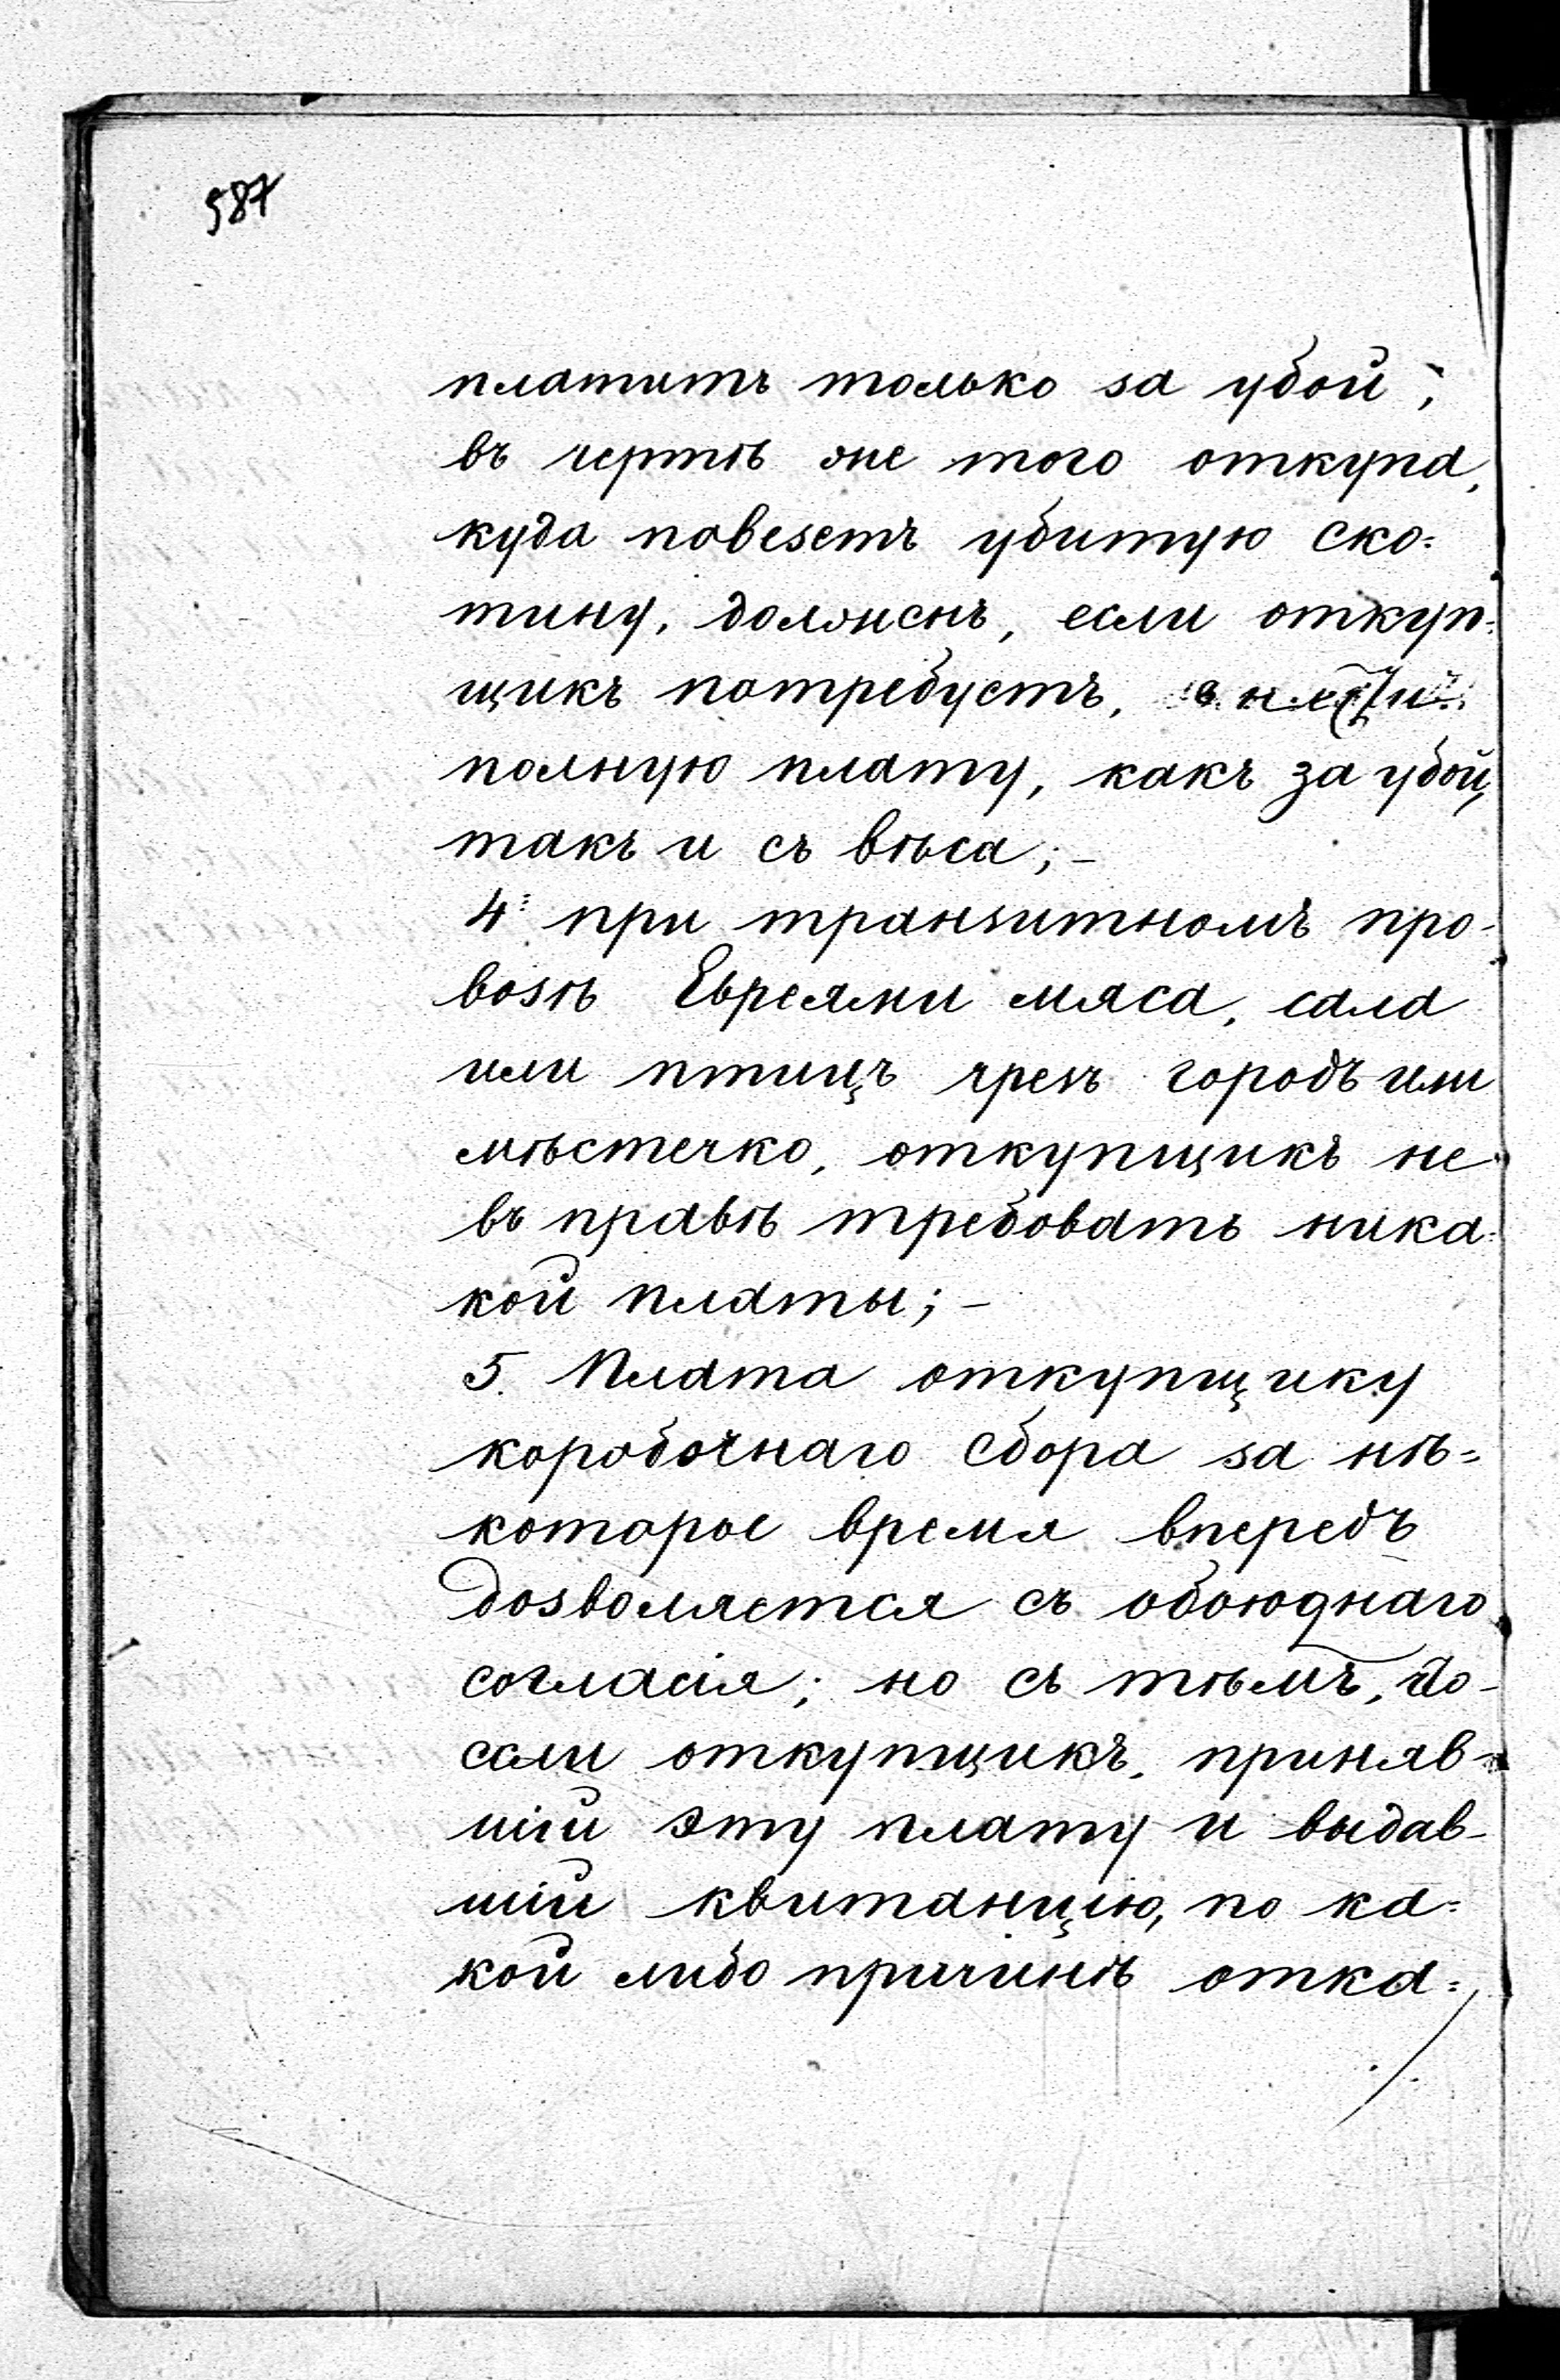 587
платитъ только за убой;
въ чертѣ же того откупа,
куда повезетъ убитую ско=
тину, долженъ, если откуп=
щикъ потребуетъ,
полную плату, какъ за убой,
такъ и съ вѣса; –
4: при транзитномъ про-
возѣ Евреями мяса, сала
или птицъ чрезъ городъ или
мѣстечко, откупщикъ не
въ правѣ требовать ника=
кой платы; –
5. Плата откупщику
коробочнаго сбора за нѣ=
которое время впередъ
дозволяется съ обоюднаго
согласія; но съ тѣмъ,
если откупщикъ, приняв-
шій эту плату и выдав-
шій квитанцію, по ка=
кой либо причинѣ отка=
./.